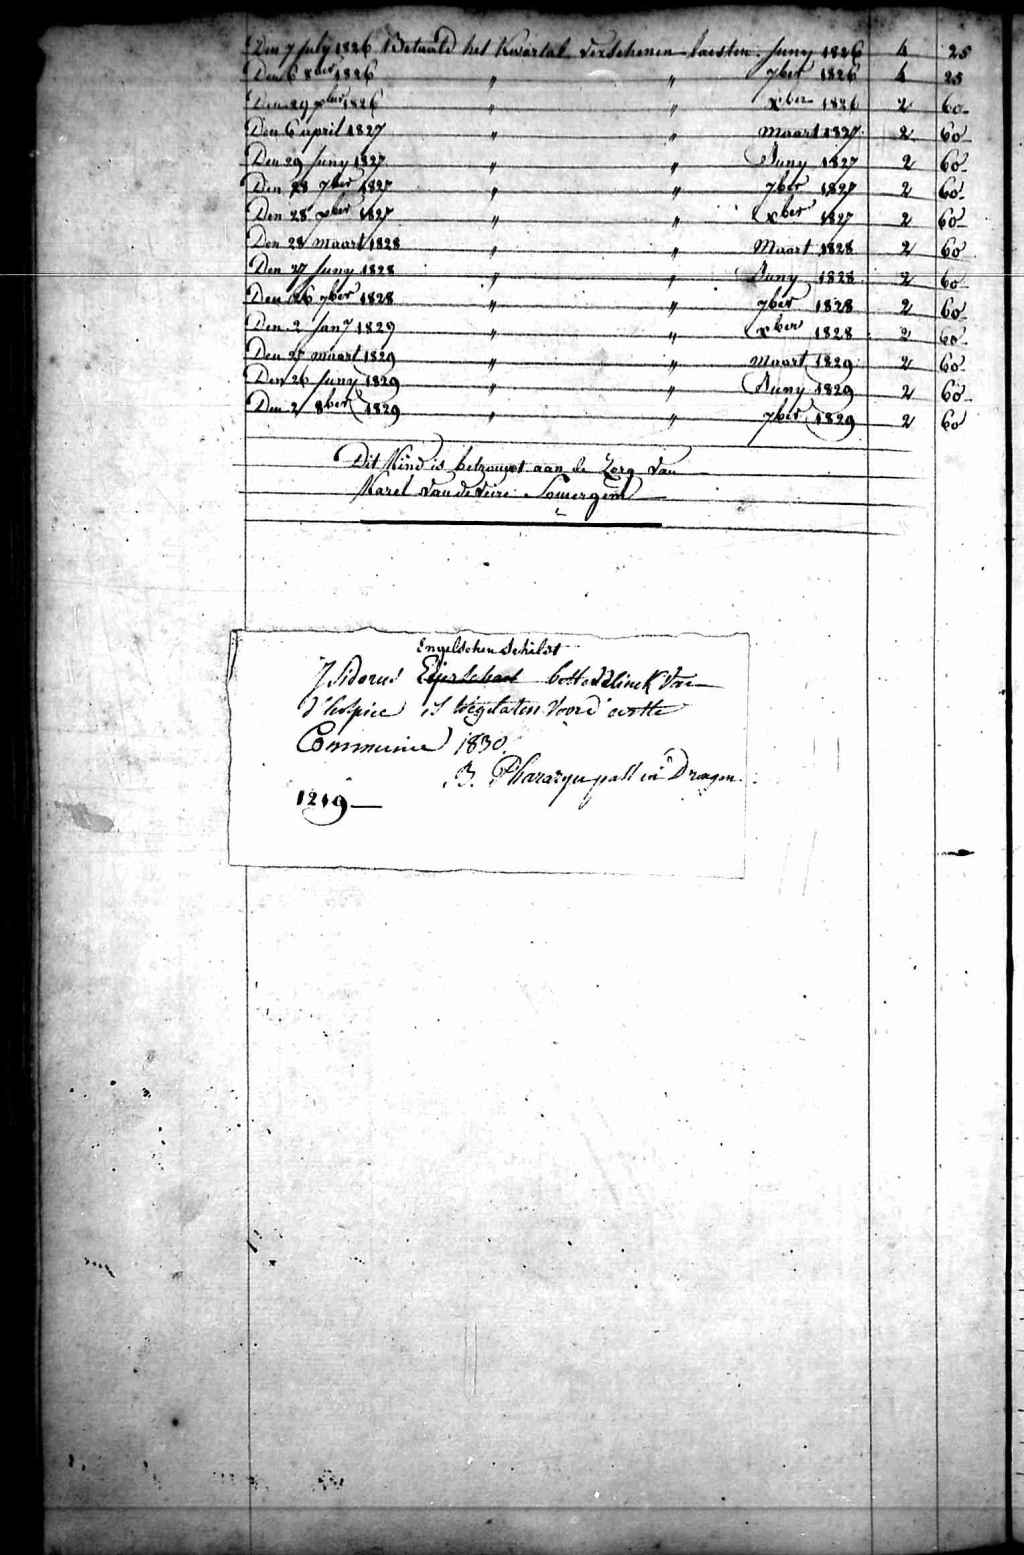 Den 7 July 1826 Betaald het Kwartal verschenen laesten Juny 1826 4 25
Den 6 8ber 1826 " " 7ber 1826 4 25
Den 29 xber 1826 " " xber 1826 2 60
Den 6 april 1827 " " Maart 1827 2 60
Den 29 Juny 1827 " " Juny 1827 2 60
Den 28 7ber 1827 " " 7ber 1827 2 60
Den 28 xber 1827 " " xber 1827 2 60
Den 28 maart 1828 " " Maart 1828 2 60
Den 27 Juny 1828 " " Juny 1828 2 60
Den 26 7ber 1828 " " 7ber 1828 2 60
Den 2 Jany 1829 " " xber 1828 2 60
Den 27 maart 1829 " " Maart 1829 2 60
Den 26 Juny 1829 " " Juny 1829 2 60
Den 2 8ber 1829 " " 7ber 1829 2 60
Dit Kind is betrouwt aan de Zorg van
Karel van de Veire Somergem
Engelschen Schildt
Isidorus
d'hospice is voord' eerste
Communie 1830
in Drongen
1219